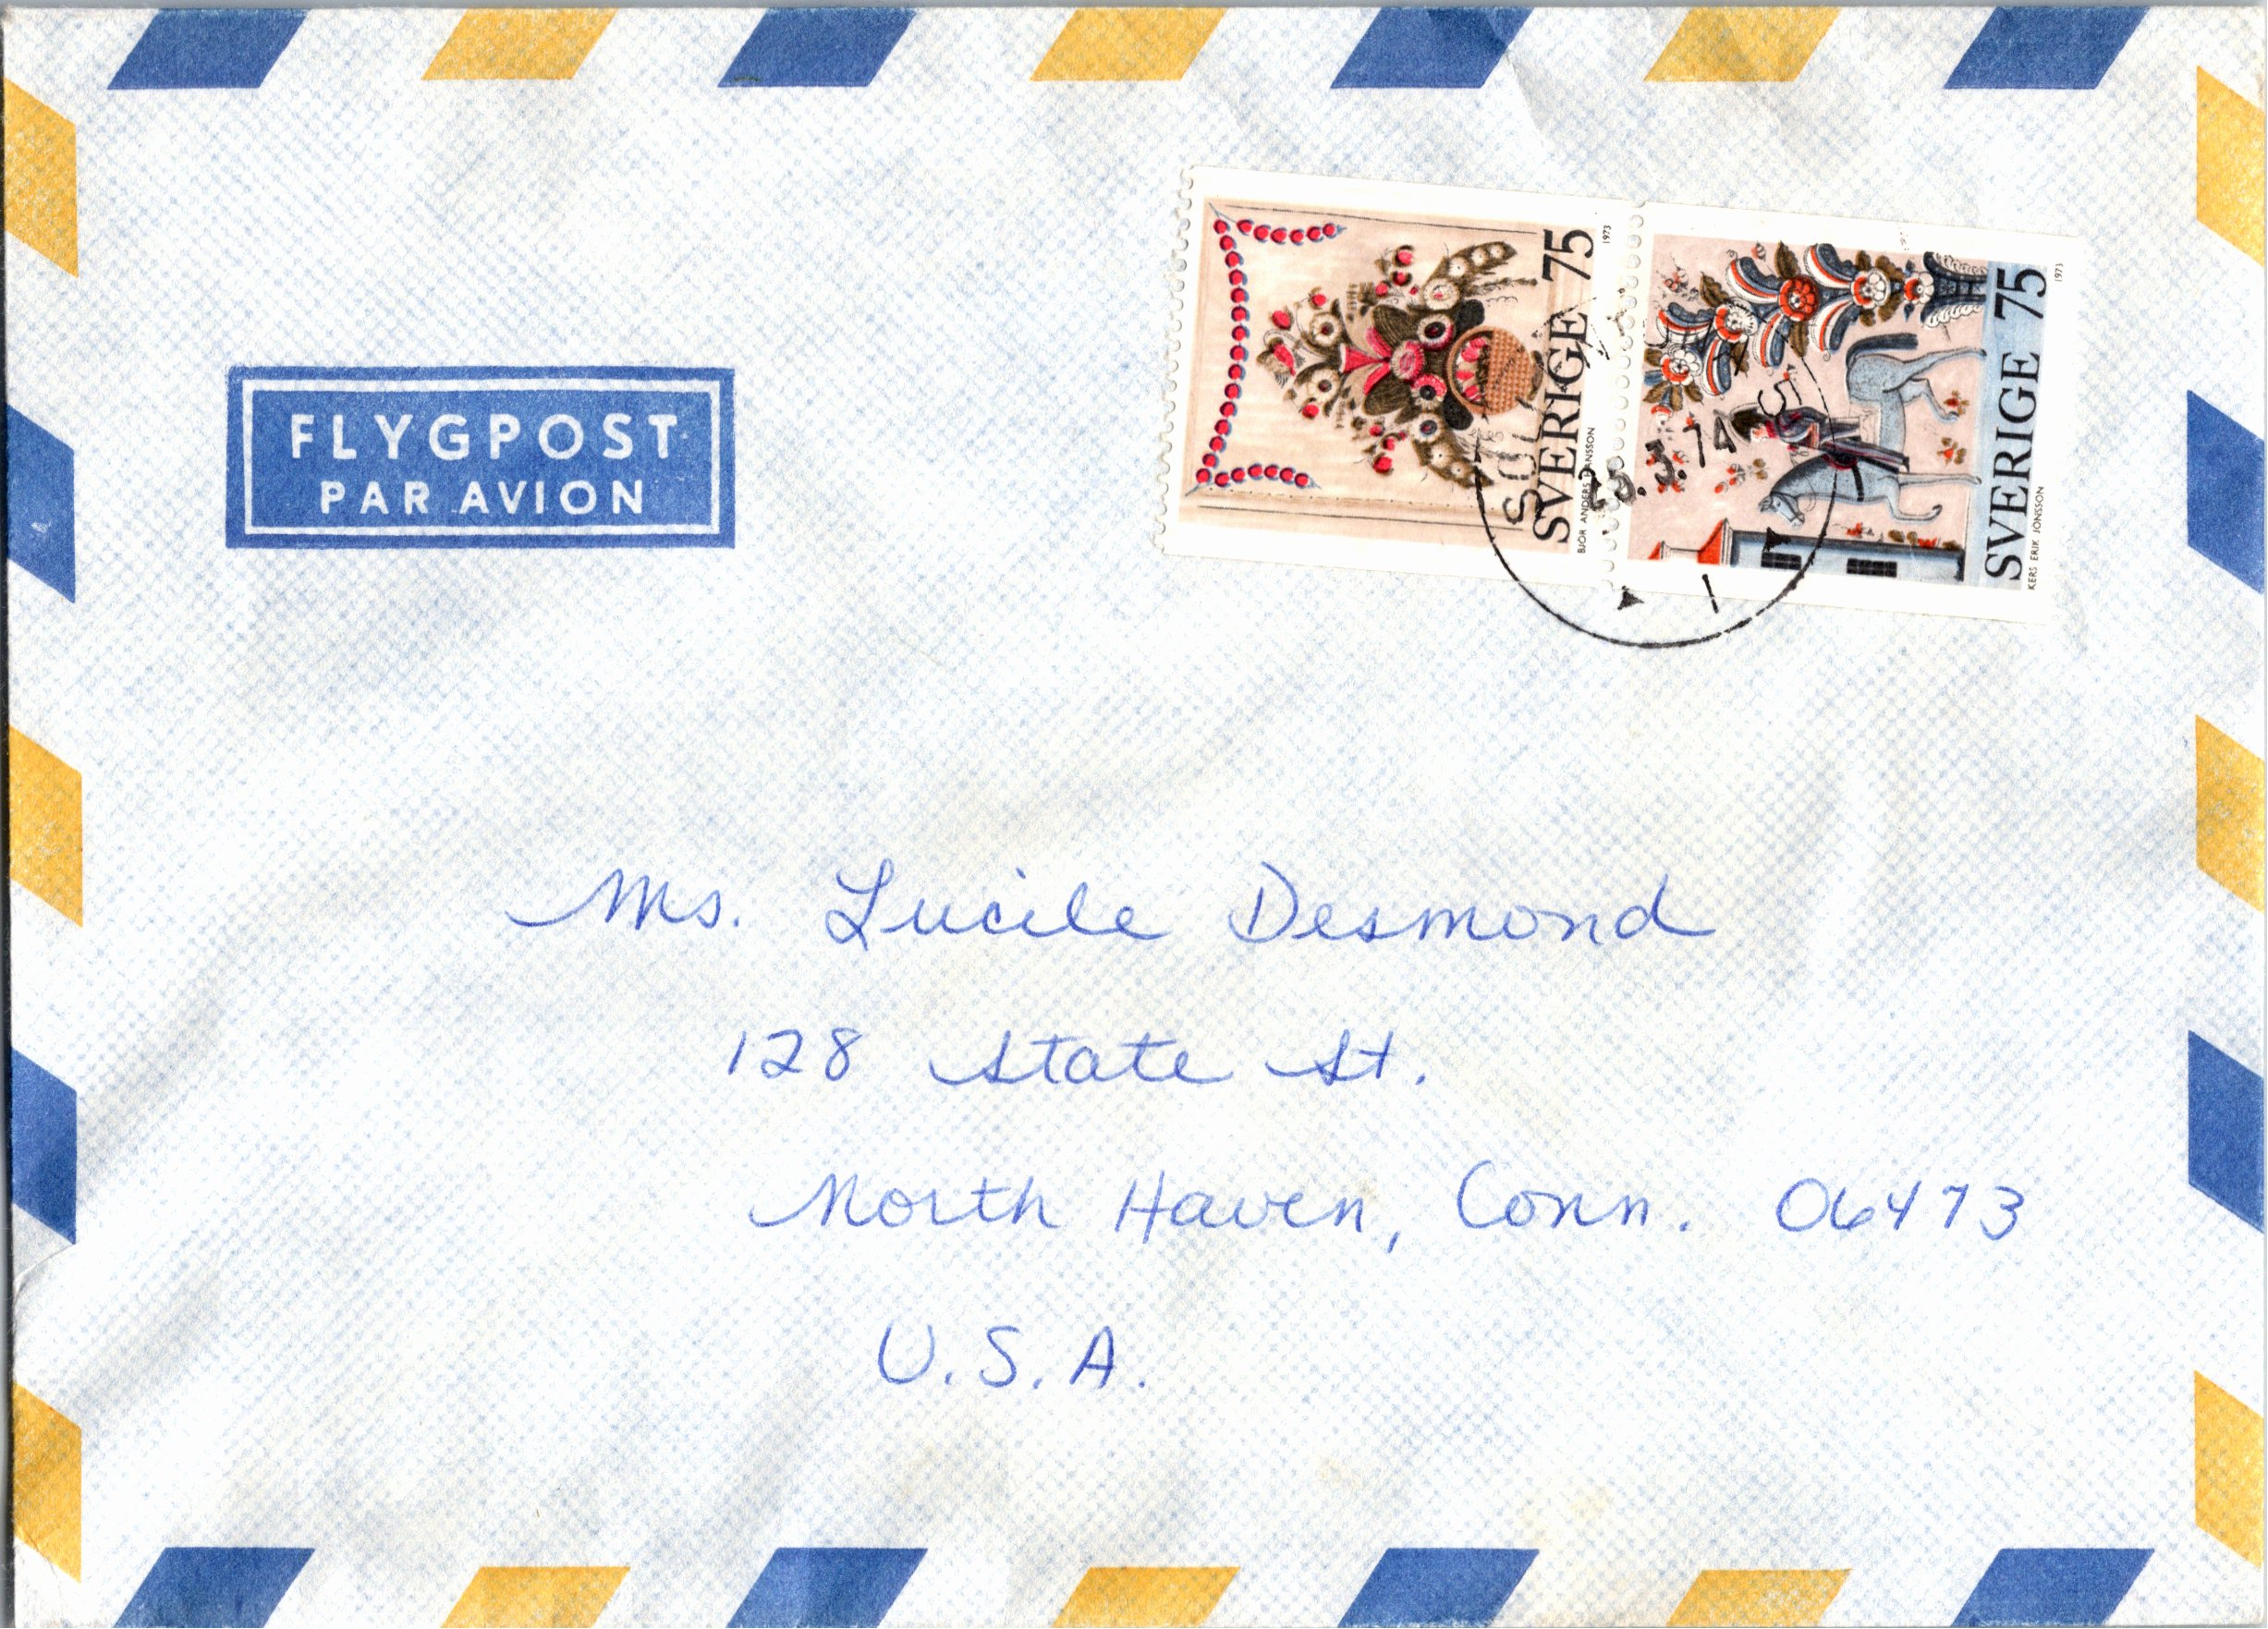 FLYGPOST
PAR AVION
SVERIGE 75
1973
SVERIGE 75
KERS ERIK JONSSON
1973
3.74
Ms. Lucile Desmond
128 State St.
North Haven, Conn. 06473
U.S.A.